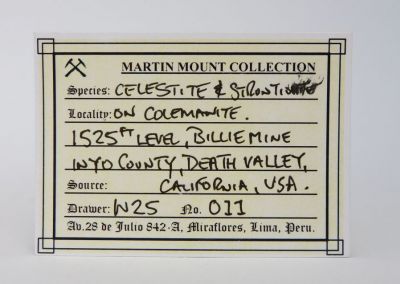 MARTIN MOUNT COLLECTION
Species: CELESTITE & STRONTI
Locality: ON COLEMANITE.
1525FT LEVEL, BILLIE MINE
INYO COUNTY, DEATH VALLEY,
Source: CALIFORNIA, USA.
Drawer: W25 No. 011
Av.28 de Julio 842-A, Miraflores, Lima, Peru.